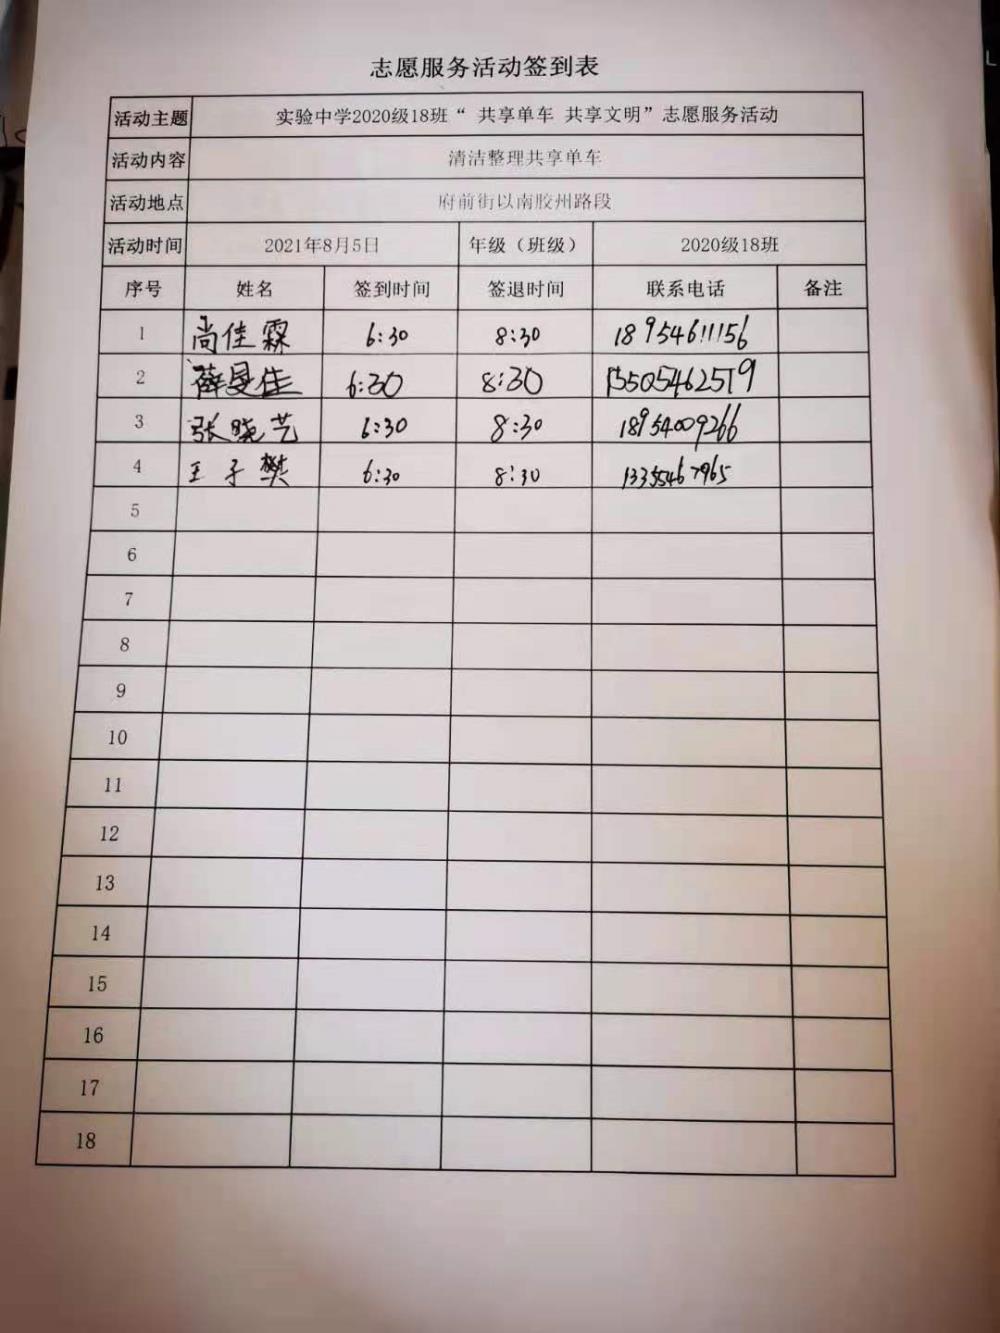 志愿服务活动签到表
活动主题 实验中学2020级18班“ 共享单车 共享文明”志愿服务活动
活动内容 清洁整理共享单车
活动地点 府前街以南胶州路段
活动时间 2021年8月5日 年级（班级） 2020级18班
序号 姓名 签到时间 签退时间 联系电话 备注
1 尚佳霖 6:30 8:30 18954611156
2 薛曼佳 6:30 8:30 15505462519
3 张晓艺 6:30 8:30 18954009266
4 王子樊 6:30 8:30 13355467965
5
6
7
8
9
10
11
12
13
14
15
16
17
18